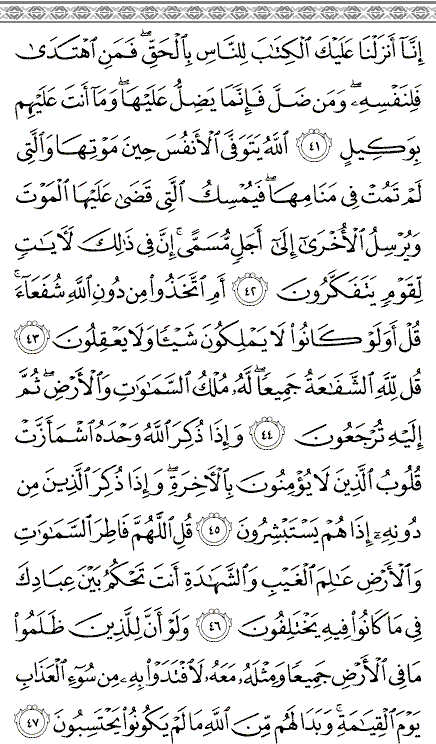 إِنَّآ أَنزَلْنَا عَلَيْكَ ٱلْكِتَٰبَ لِلنَّاسِ بِٱلْحَقِّ ۖ فَمَنِ ٱهْتَدَىٰ
فَلِنَفْسِهِۦ ۖ وَمَن ضَلَّ فَإِنَّمَا يَضِلُّ عَلَيْهَا ۖ وَمَآ أَنتَ عَلَيْهِم
بِوَكِيلٍ ٤١ ٱللَّهُ يَتَوَفَّى ٱلْأَنفُسَ حِينَ مَوْتِهَا وَٱلَّتِى
لَمْ تَمُتْ فِى مَنَامِهَا ۖ فَيُمْسِكُ ٱلَّتِى قَضَىٰ عَلَيْهَا ٱلْمَوْتَ
وَيُرْسِلُ ٱلْأُخْرَىٰٓ إِلَىٰٓ أَجَلٍ مُّسَمًّى ۚ إِنَّ فِى ذَٰلِكَ لَءَايَٰتٍ
لِّقَوْمٍ يَتَفَكَّرُونَ ٤٢ أَمِ ٱتَّخَذُوا۟ مِن دُونِ ٱللَّهِ شُفَعَآءَ ۚ
قُلْ أَوَلَوْ كَانُوا۟ لَا يَمْلِكُونَ شَيْـًٔا وَلَا يَعْقِلُونَ ٤٣
قُل لِّلَّهِ ٱلشَّفَٰعَةُ جَمِيعًا ۖ لَّهُۥ مُلْكُ ٱلسَّمَٰوَٰتِ وَٱلْأَرْضِ ۖ ثُمَّ
إِلَيْهِ تُرْجَعُونَ ٤٤ وَإِذَا ذُكِرَ ٱللَّهُ وَحْدَهُ ٱشْمَأَزَّتْ
قُلُوبُ ٱلَّذِينَ لَا يُؤْمِنُونَ بِٱلْءَاخِرَةِ ۖ وَإِذَا ذُكِرَ ٱلَّذِينَ مِن
دُونِهِۦٓ إِذَا هُمْ يَسْتَبْشِرُونَ ٤٥ قُلِ ٱللَّهُمَّ فَاطِرَ ٱلسَّمَٰوَٰتِ
وَٱلْأَرْضِ عَٰلِمَ ٱلْغَيْبِ وَٱلشَّهَٰدَةِ أَنتَ تَحْكُمُ بَيْنَ عِبَادِكَ
فِى مَا كَانُوا۟ فِيهِ يَخْتَلِفُونَ ٤٦ وَلَوْ أَنَّ لِلَّذِينَ ظَلَمُوا۟
مَا فِى ٱلْأَرْضِ جَمِيعًا وَمِثْلَهُۥ مَعَهُۥ لَٱفْتَدَوْا۟ بِهِۦ مِن سُوٓءِ ٱلْعَذَابِ
يَوْمَ ٱلْقِيَٰمَةِ ۚ وَبَدَا لَهُم مِّنَ ٱللَّهِ مَا لَمْ يَكُونُوا۟ يَحْتَسِبُونَ ٤٧